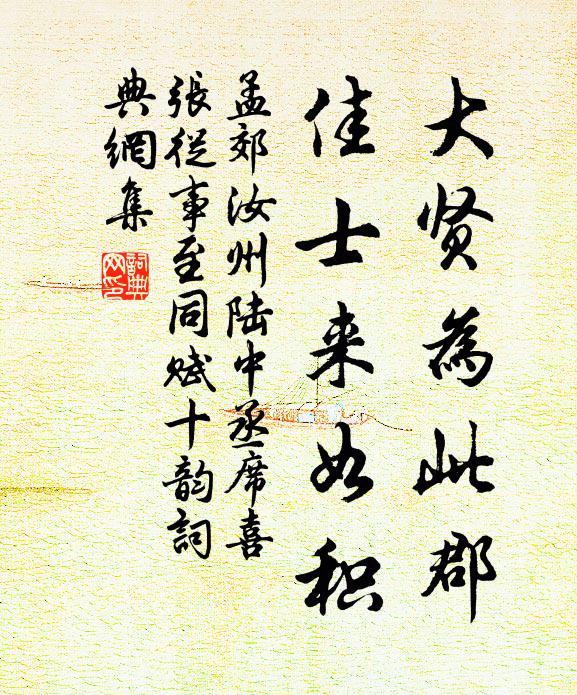 大贤為此郡
佳士来如积
孟郊汝州陆中丞席喜
張從事至同赋十韵詞
典網集
詞典网印